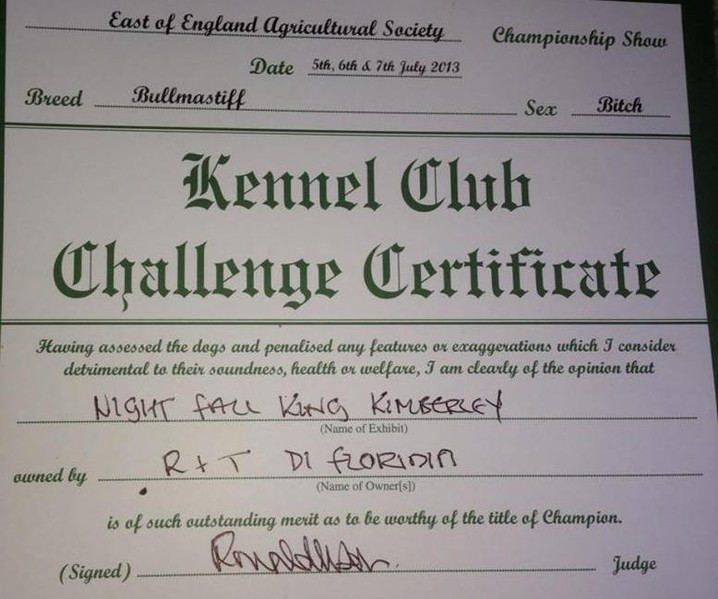 East of England Agricultural Society Championship Show
Date 5th, 6th & 7th July 2013
Breed Bullmastiff Sex Bitch
Kennel Club
Challenge Certificate
Having assessed the dogs and penalised any features or exaggerations which I consider
detrimental to their soundness, health or welfare, I am clearly of the opinion that
NIGHT FALL KING KIMBERLEY
(Name of Exhibit)
owned by R + T DI FLORIDIA
(Name of Owner[s])
is of such outstanding merit as to be worthy of the title of Champion.
(Signed) Judge